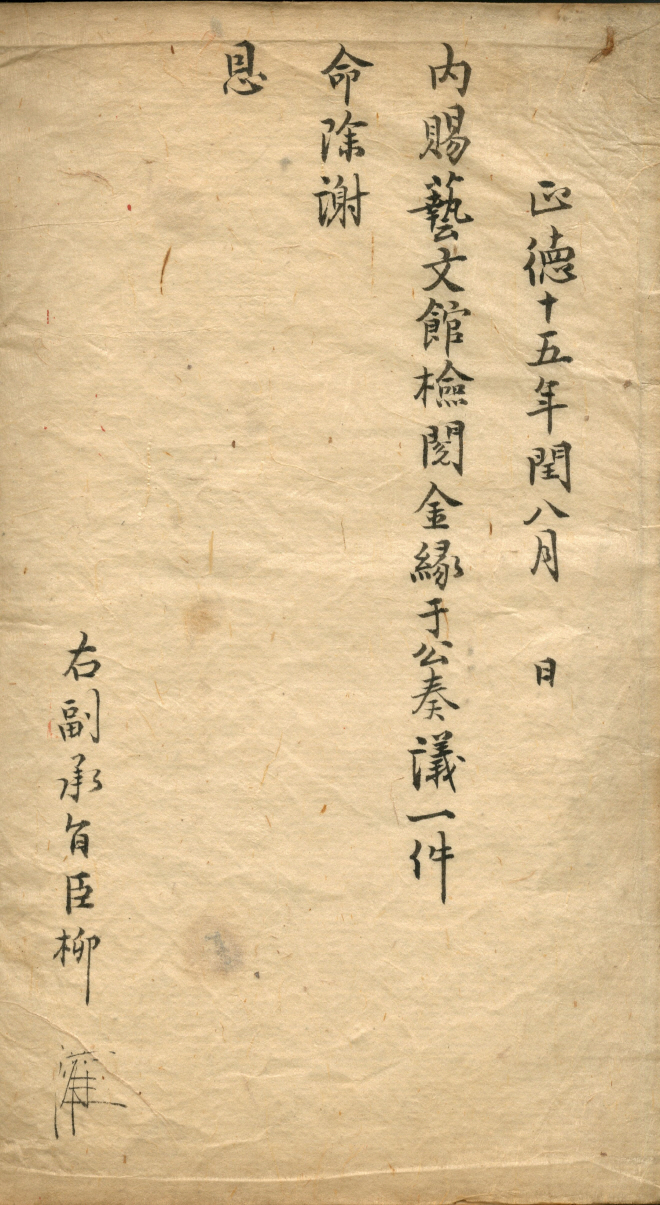 正德十五年閏八月 日
內賜藝文館檢閱金緣于公奏議一件
命除謝
恩
右副承旨臣柳